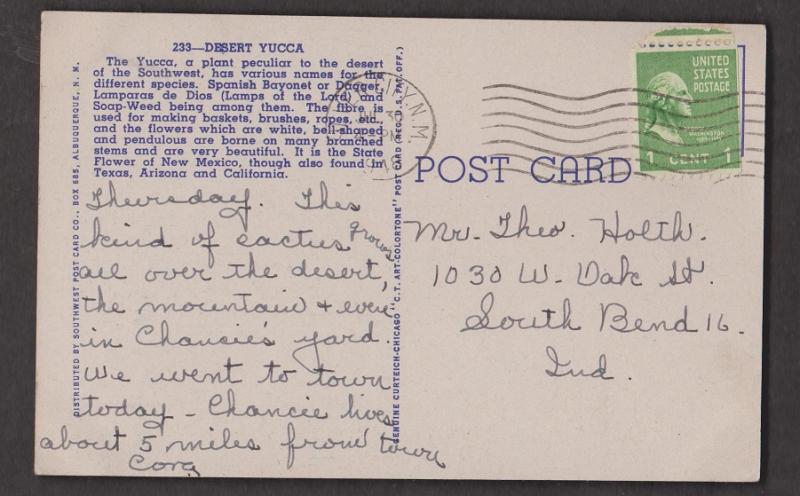 233—DESERT YUCCA
The Yucca, a plant peculiar to the desert
of the Southwest, has various names for the
different species. Spanish Bayonet or Dagger,
Lamparas de Dios (Lamps of the Lord) and
Soap-Weed being among them. The fibre is
used for making baskets, brushes, ropes, etc.,
and the flowers which are white, bell-shaped
and pendulous are borne on many branched
stems and are very beautiful. It is the State
Flower of New Mexico, though also found in
Texas, Arizona and California.
Thursday. This
kind of cactus grows
all over the desert,
the mountain & even
in Chancie's yard.
We went to town
today - Chancie lives
about 5 miles from town
Cora
DISTRIBUTED BY SOUTHWEST POST CARD CO., BOX 685, ALBUQUERQUE, N. M.
GENUINE CURTEICH-CHICAGO "C.T. ART-COLORTONE" POST CARD (REG. U.S. PAT. OFF.)
N.M.
PM
POST CARD
UNITED
STATES
POSTAGE
WASHINGTON
1 CENT 1
Mr. Theo. Holth.
1030 W. Oak St.
South Bend 16.
Ind.